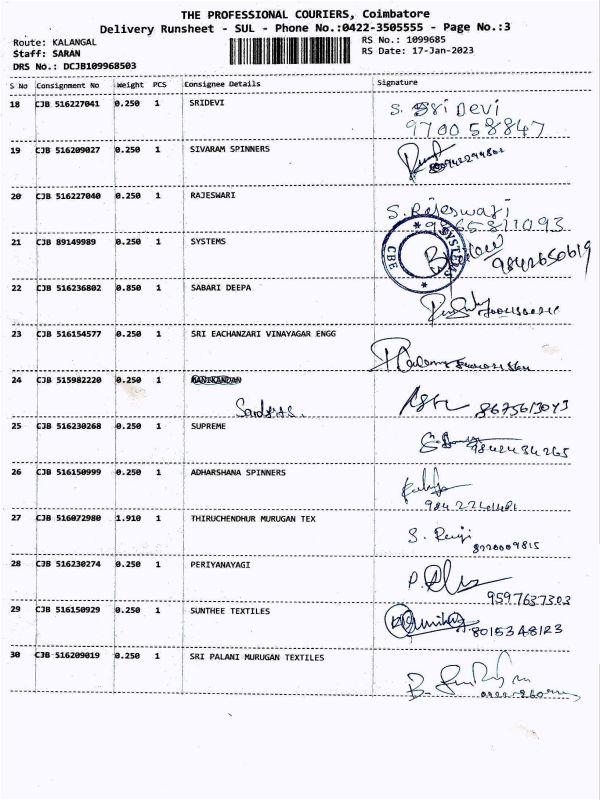 THE PROFESSIONAL COURIERS, Coimbatore
Delivery Runsheet - SUL - Phone No.:0422-3505555 - Page No.:3
Route: KALANGAL
Staff: SARAN
DRS No.: DCJB109968503
RS No.: 1099685
RS Date: 17-Jan-2023
S No Consignment No Weight PCS Consignee Details Signature
18 CJB 516227041 0.250 1 SRIDEVI S. SriDevi
970058847
19 CJB 516209027 0.250 1 SIVARAM SPINNERS
20 CJB 516227040 0.250 1 RAJESWARI S. Rajeswari
9865811093
21 CJB 89149989 0.250 1 SYSTEMS
SYSTEMS * CBE *
9842650619
22 CJB 516236802 0.850 1 SABARI DEEPA
23 CJB 516154577 0.250 1 SRI EACHANZARI VINAYAGAR ENGG
24 CJB 515982220 0.250 1 MANIKANDAN
8675613043
25 CJB 516230268 0.250 1 SUPREME
9842434265
26 CJB 516150999 0.250 1 ADHARSHANA SPINNERS
27 CJB 516072980 1.910 1 THIRUCHENDHUR MURUGAN TEX S.
8220009815
28 CJB 516230274 0.250 1 PERIYANAYAGI P.
9597637303
29 CJB 516150929 0.250 1 SUNTHEE TEXTILES
8015348123
30 CJB 516209019 0.250 1 SRI PALANI MURUGAN TEXTILES B.